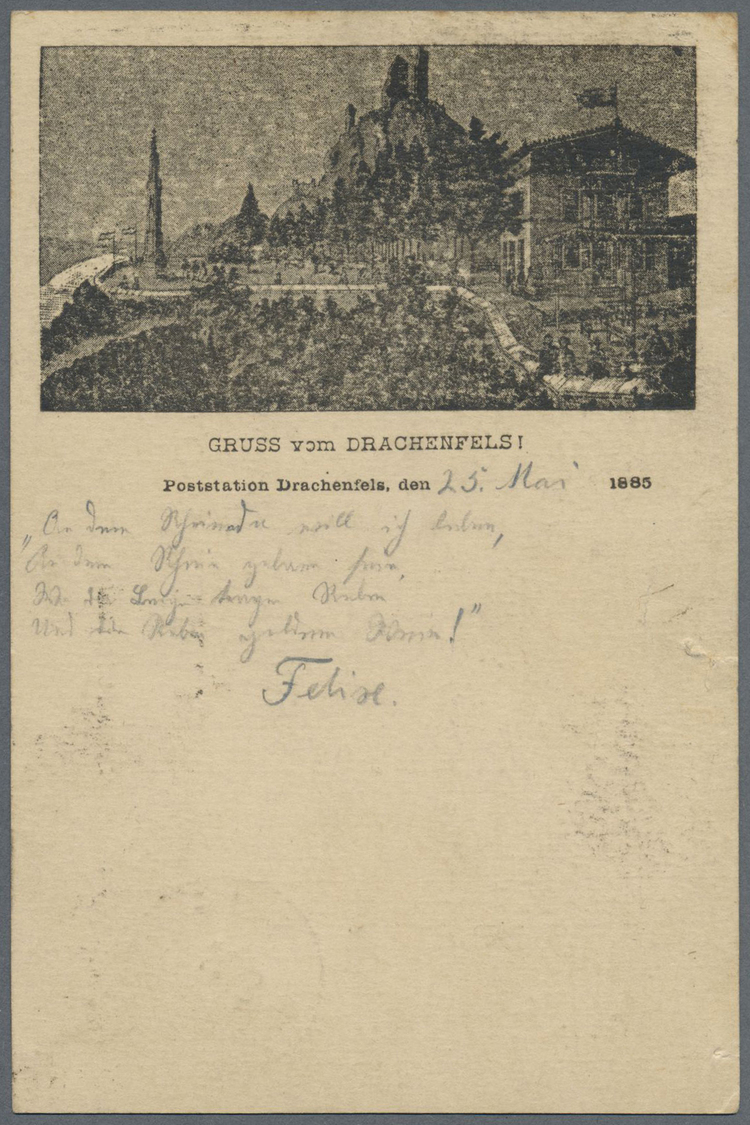 GRUSS vom DRACHENFELS!
Poststation Drachenfels, den 25. Mai 1885
„An dem Rheine will ich leben,
An dem Rhein geboren sein,
Wo die Berge tragen Reben
Und die Reben goldnen Wein!"
Felix.